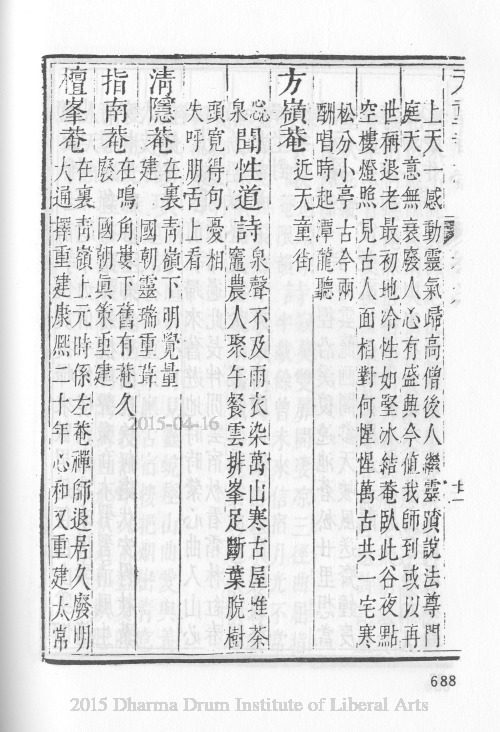 上天一感動靈氣歸高僧後人繼靈蹟說法尊門
庭天意無衰廢人心有盛典今值我師到或以再
世稱退老最初地冷性如堅冰結菴臥此谷夜點
空樓燈照見古人面相對何惺惺萬古共一宅寒
松分小亭古今兩
酬唱時起潭龍聽
方嶺菴 近天童街
忞聞性道詩 泉聲不及雨衣染萬山寒古屋堆茶
泉 竈農人聚午餐雲排峯足斷葉脫樹
頭寬得句憂相
失呼朋舌上看
清隱菴 在裏青嶺下明覺量
建 國朝靈瑞重葺
指南菴 在鳴角蔞下舊有菴久
廢 國朝眞策重建
檀峯菴 在裏青嶺上元時係左菴禪師退居久廢明
大通擇重建康熙二十年心和又重建太常
2015-04-16
688
2015 Dharma Drum Institute of Liberal Arts